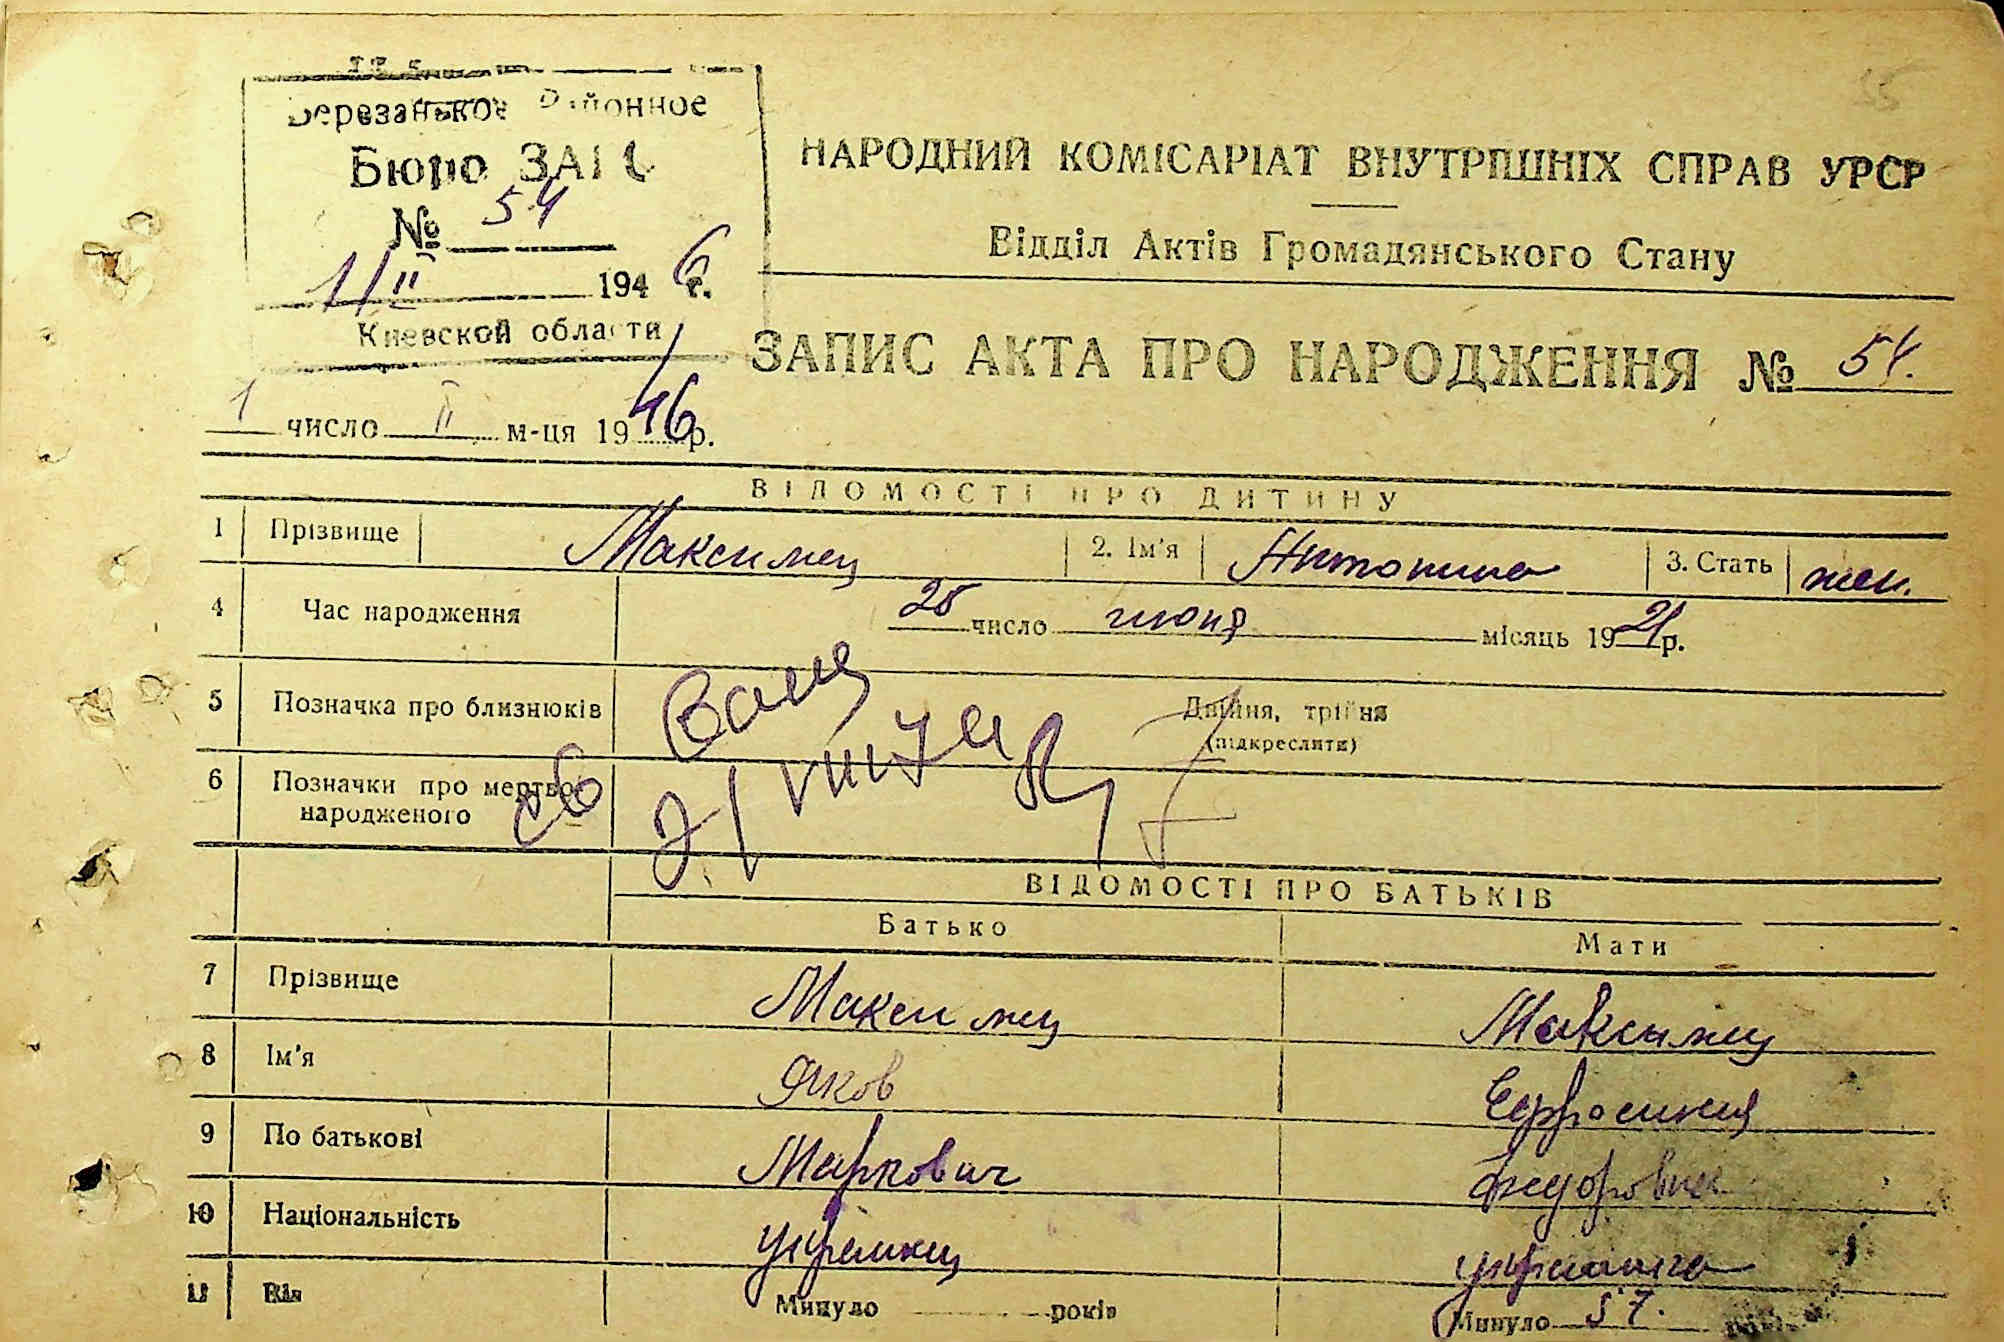 Березанькое Районное
Бюро ЗАГС
№ 54
1/II 1946 г.
Киевской области
НАРОДНИЙ КОМІСАРІАТ ВНУТРІШНІХ СПРАВ УРСР
Відділ Актів Громадянського Стану
ЗАПИС АКТА ПРО НАРОДЖЕННЯ № 54.
1 число II м-ця 1946 р.
ВІДОМОСТІ ПРО ДИТИНУ
1 Прізвище Максимец 2. Ім'я Антонина 3. Стать жен.
4 Час народження 25 число июня місяць 1921 р.
5 Позначка про близнюків Двійня, трійня
(підкреслити)
6 Позначки про мертво-
народженого
ВІДОМОСТІ ПРО БАТЬКІВ
Батько Мати
7 Прізвище Максимец Максимец
8 Ім'я Яков Ефросиния
9 По батькові Маркович Федоровна
10 Національність украинец украинка
11 Вік Минуло років Минуло 57.